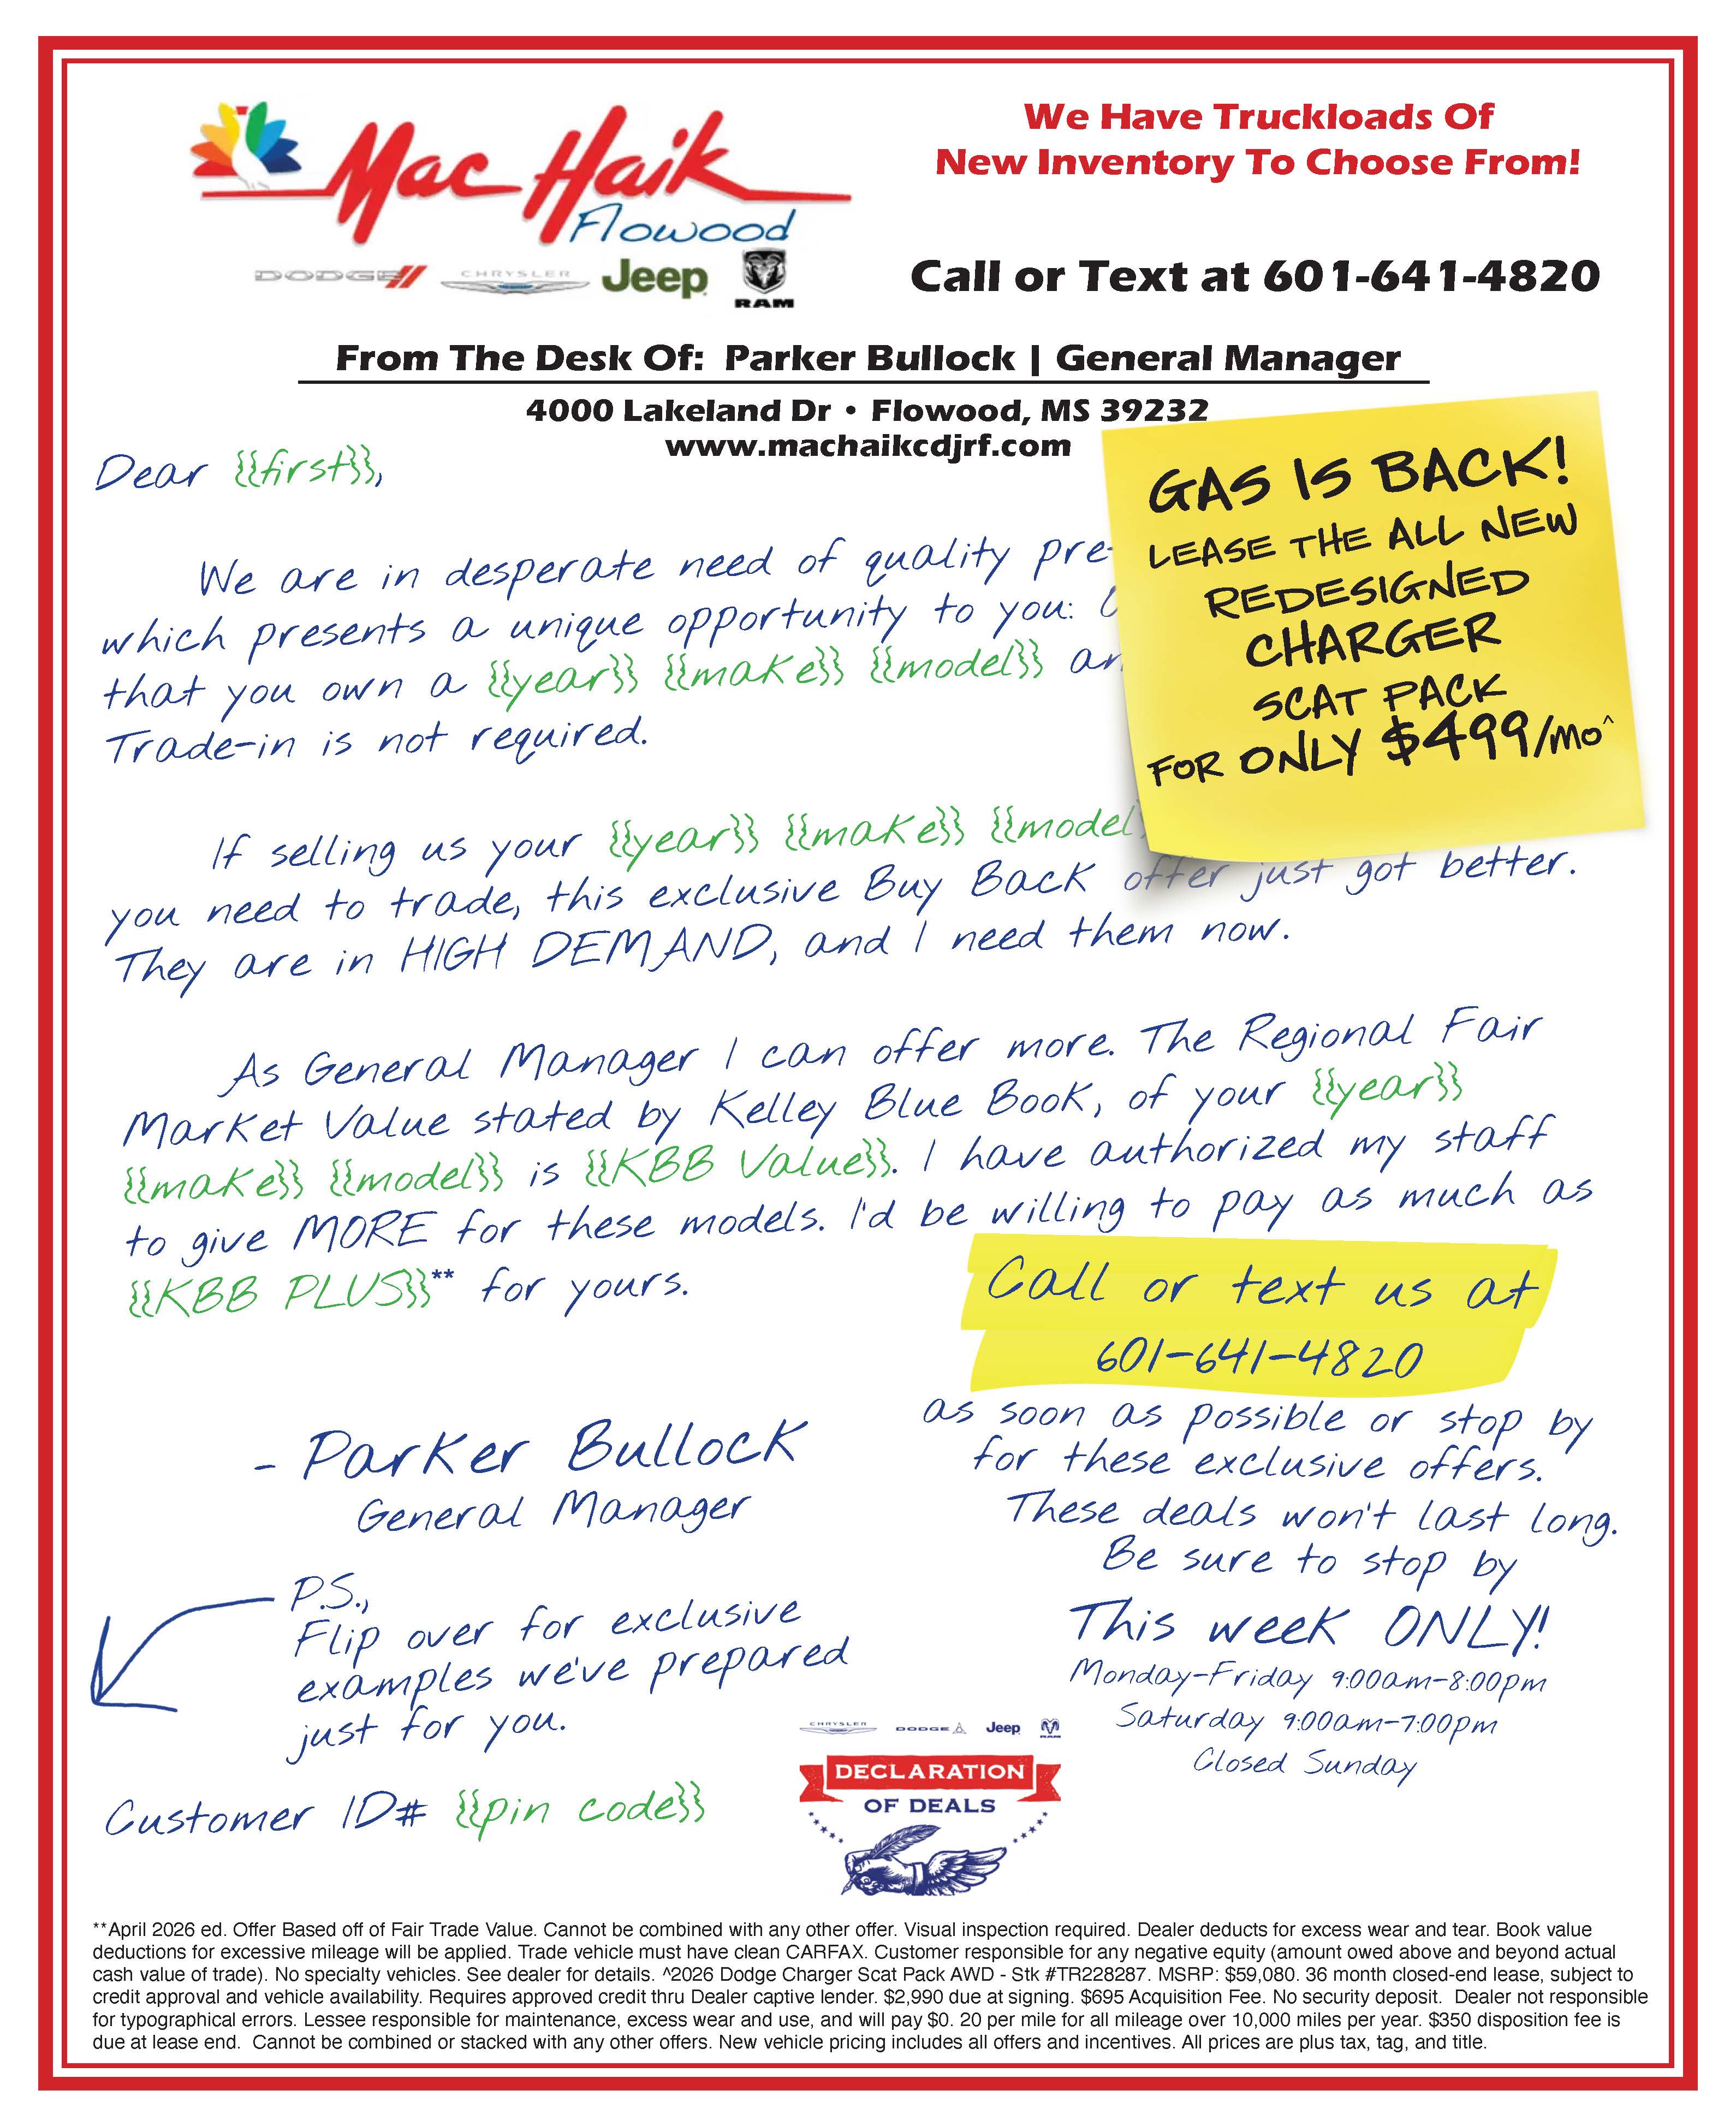 Mac Haik
Flowood
DODGE CHRYSLER Jeep RAM
We Have Truckloads Of
New Inventory To Choose From!
Call or Text at 601-641-4820
From The Desk Of: Parker Bullock | General Manager
4000 Lakeland Dr • Flowood, MS 39232
www.machaikcdjrf.com
GAS IS BACK!
LEASE THE ALL NEW
REDESIGNED
CHARGER
SCAT PACK
FOR ONLY $499/MO^
Dear {{first}},
We are in desperate need of quality pre-
which presents a unique opportunity to you:
that you own a {{year}} {{make}} {{model}}
Trade-in is not required.
If selling us your {{year}} {{make}} {{model
you need to trade, this exclusive Buy Back offer just got better.
They are in HIGH DEMAND, and I need them now.
As General Manager I can offer more. The Regional Fair
Market Value stated by Kelley Blue Book, of your {{year}}
{{make}} {{model}} is {{KBB Value}}. I have authorized my staff
to give MORE for these models. I'd be willing to pay as much as
{{KBB PLUS}}** for yours.
Call or text us at
601-641-4820
as soon as possible or stop by
for these exclusive offers.
These deals won't last long.
Be sure to stop by
This week ONLY!
Monday-Friday 9:00am-8:00pm
Saturday 9:00am-7:00pm
Closed Sunday
- Parker Bullock
General Manager
P.S.,
Flip over for exclusive
examples we've prepared
just for you.
Customer ID# {{pin code}}
CHRYSLER DODGE Jeep RAM
DECLARATION
OF DEALS
**April 2026 ed. Offer Based off of Fair Trade Value. Cannot be combined with any other offer. Visual inspection required. Dealer deducts for excess wear and tear. Book value
deductions for excessive mileage will be applied. Trade vehicle must have clean CARFAX. Customer responsible for any negative equity (amount owed above and beyond actual
cash value of trade). No specialty vehicles. See dealer for details. ^2026 Dodge Charger Scat Pack AWD - Stk #TR228287. MSRP: $59,080. 36 month closed-end lease, subject to
credit approval and vehicle availability. Requires approved credit thru Dealer captive lender. $2,990 due at signing. $695 Acquisition Fee. No security deposit. Dealer not responsible
for typographical errors. Lessee responsible for maintenance, excess wear and use, and will pay $0. 20 per mile for all mileage over 10,000 miles per year. $350 disposition fee is
due at lease end. Cannot be combined or stacked with any other offers. New vehicle pricing includes all offers and incentives. All prices are plus tax, tag, and title.